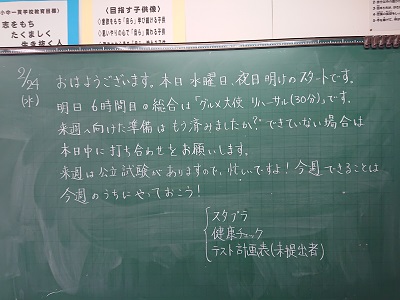 小中一貫学校教育目標
志をもち
たくましく
生き抜く人
〈目指す子供像〉
2/24
(水)
おはようございます。本日 水曜日、祝日明けのスタートです。
明日 6時間目の総合は "グルメ大使 リハーサル(30分)"です。
来週へ向けた準備は もう済みましたか？できていない場合は
本日中に打ち合わせをお願いします。
来週は公立試験がありますので、忙しいですよ！今週できることは
今週のうちにやっておこう！
スタプラ
健康チェック
テスト計画表(未提出者)